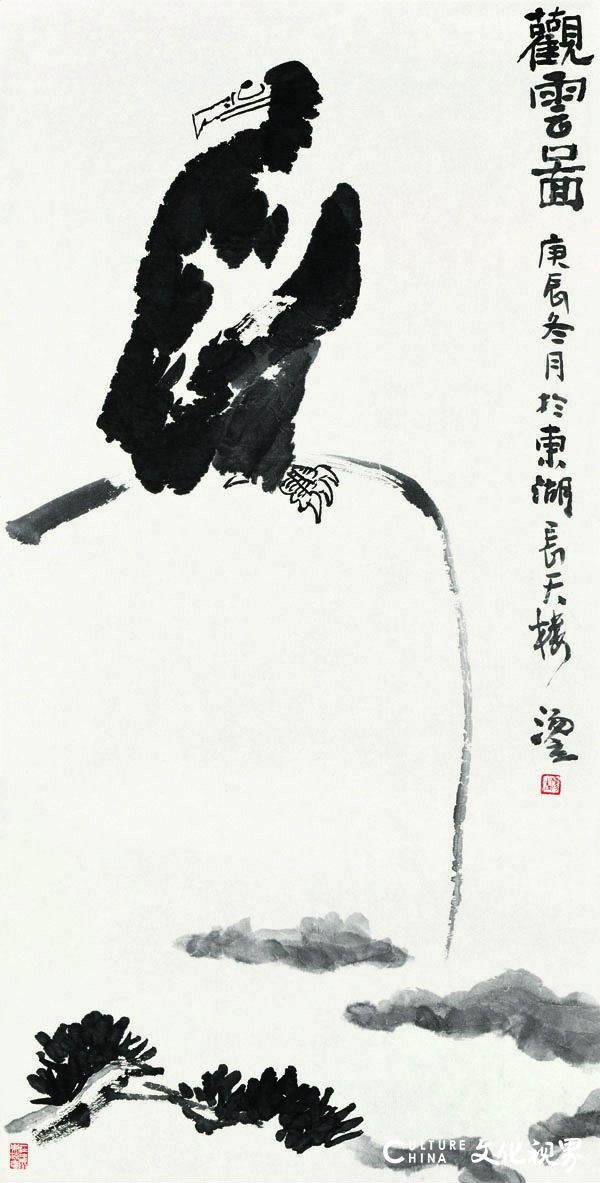 觀雲圖
庚辰冬月於東湖長天樓
湯立
CULTURE
CHINA
文化视界